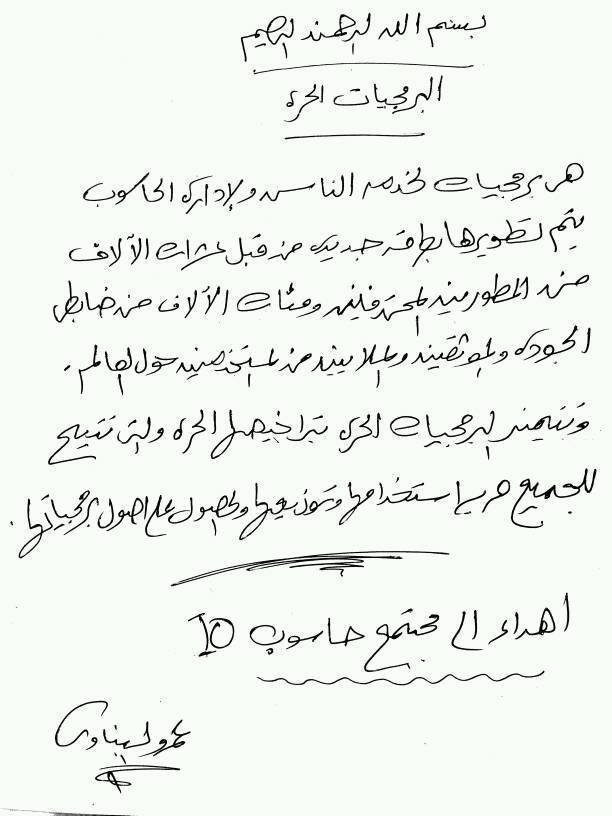 بسم الله الرحمن الرحيم
البرمجيات الحره
هى برمجيات لخدمه الناس ولإداره الحاسوب
يتم تطويرها بطرقه جديده من قبل عشرات الآلاف
من المطورين المحترفين ومئات الآلاف من ضابطى
الجوده والموثقين والملايين من المستخدمين حول العالم .
وتتميز البرمجيات الحره بتراخيصها الحره والتى تتيح
للجميع حرية استخدامها وتوزيعها والحصول على اصول برمجياتها .
اهداء الى مجتمع حاسوب IO
عمرو